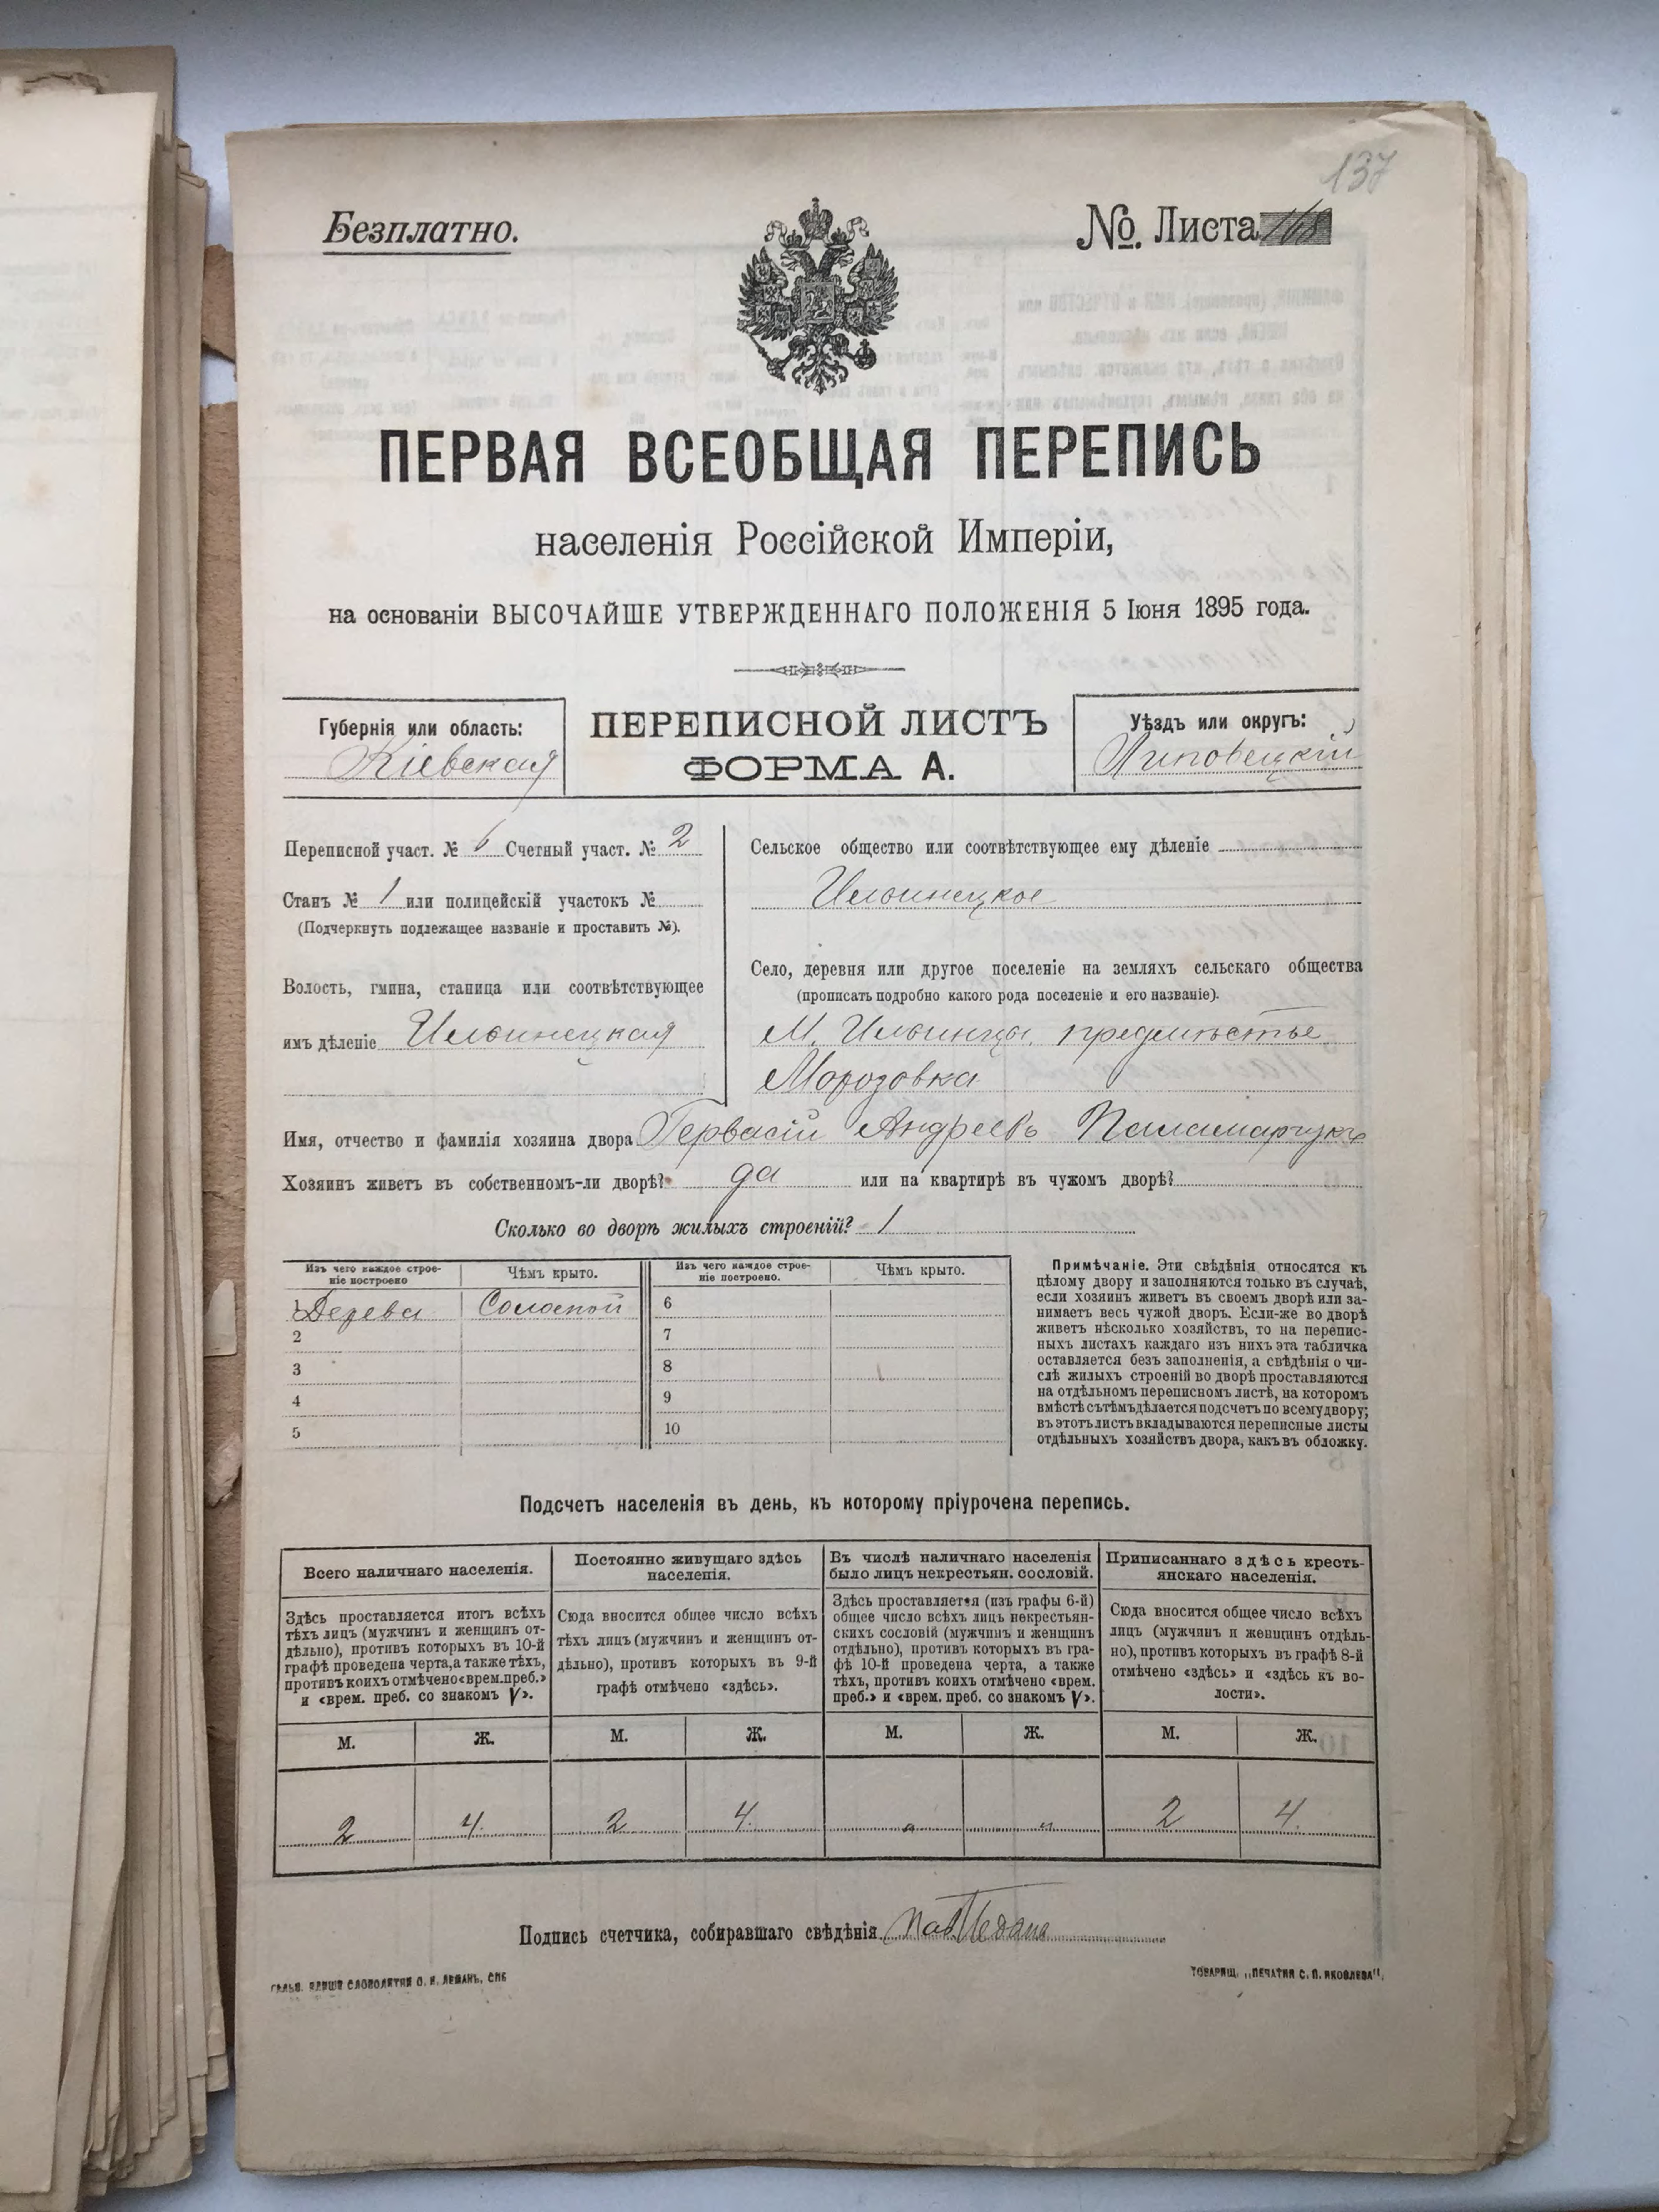 137
Безплатно.
№. Листа
ПЕРВАЯ ВСЕОБЩАЯ ПЕРЕПИСЬ
населенія Россійской Имперіи,
на основаніи ВЫСОЧАЙШЕ УТВЕРЖДЕННАГО ПОЛОЖЕНІЯ 5 Іюня 1895 года.
Губернія или область:
Кіевская
ПЕРЕПИСНОЙ ЛИСТЪ
ФОРМА А.
Уѣздъ или округъ:
Липовецкій
Переписной участ. № 6 Счетный участ. № 2
Станъ № 1 или полицейскій участокъ №
(Подчеркнуть подлежащее названіе и проставить №).
Волость, гмина, станица или соотвѣтствующее
имъ дѣленіе Ильинецкая
Сельское общество или соотвѣтствующее ему дѣленіе
Ильинецкое
Село, деревня или другое поселеніе на земляхъ сельскаго общества
(прописать подробно какого рода поселеніе и его названіе).
М. Ильинцы, предмѣстье
Морозовка
Имя, отчество и фамилія хозяина двора Гервасій Андреевъ Паламарчукъ
Хозяинъ живетъ въ собственномъ-ли дворѣ? да или на квартирѣ въ чужомъ дворѣ?
Сколько во дворѣ жилыхъ строеній? 1
Изъ чего каждое строе-
ніе построено
Чѣмъ крыто.
Изъ чего каждое строе-
ніе построено.
Чѣмъ крыто.
1 Дерева Соломой 6
2 7
3 8
4 9
5 10
Примѣчаніе. Эти свѣдѣнія относятся къ
цѣлому двору и заполняются только въ случаѣ,
если хозяинъ живетъ въ своемъ дворѣ или за-
нимаетъ весь чужой дворъ. Если-же во дворѣ
живетъ нѣсколько хозяйствъ, то на перепис-
ныхъ листахъ каждаго изъ нихъ эта табличка
оставляется безъ заполненія, а свѣдѣнія о чи-
слѣ жилыхъ строеній во дворѣ проставляются
на отдѣльномъ переписномъ листѣ, на которомъ
вмѣстѣ сътѣмъ дѣлается подсчетъ по всему двору;
въ этотъ листъ вкладываются переписные листы
отдѣльныхъ хозяйствъ двора, какъ въ обложку.
Подсчетъ населенія въ день, къ которому пріурочена перепись.
Всего наличнаго населенія.
Здѣсь проставляется итогъ всѣхъ
тѣхъ лицъ (мужчинъ и женщинъ от-
дѣльно), противъ которыхъ въ 10-й
графѣ проведена черта, а также тѣхъ,
противъ коихъ отмѣчено «врем. преб.»
и «врем. преб. со знакомъ V».
Постоянно живущаго здѣсь
населенія.
Сюда вносится общее число всѣхъ
тѣхъ лицъ (мужчинъ и женщинъ от-
дѣльно), противъ которыхъ въ 9-й
графѣ отмѣчено «здѣсь».
Въ числѣ наличнаго населенія
было лицъ некрестьян. сословій.
Здѣсь проставляется (изъ графы 6-й)
общее число всѣхъ лицъ некрестьян-
скихъ сословій (мужчинъ и женщинъ
отдѣльно), противъ которыхъ въ гра-
фѣ 10-й проведена черта, а также
тѣхъ, противъ коихъ отмѣчено «врем.
преб.» и «врем. преб. со знакомъ V».
Приписаннаго здѣсь кресть-
янскаго населенія.
Сюда вносится общее число всѣхъ
лицъ (мужчинъ и женщинъ отдѣль-
но), противъ которыхъ въ графѣ 8-й
отмѣчено «здѣсь» и «здѣсь къ во-
лости».
М. Ж. М. Ж. М. Ж. М. Ж.
2 4. 2 4. " " 2 4.
Подпись счетчика, собиравшаго свѣдѣнія
ТОВАРИЩ. „ПЕЧАТНЯ С. П. ЯКОВЛЕВА".